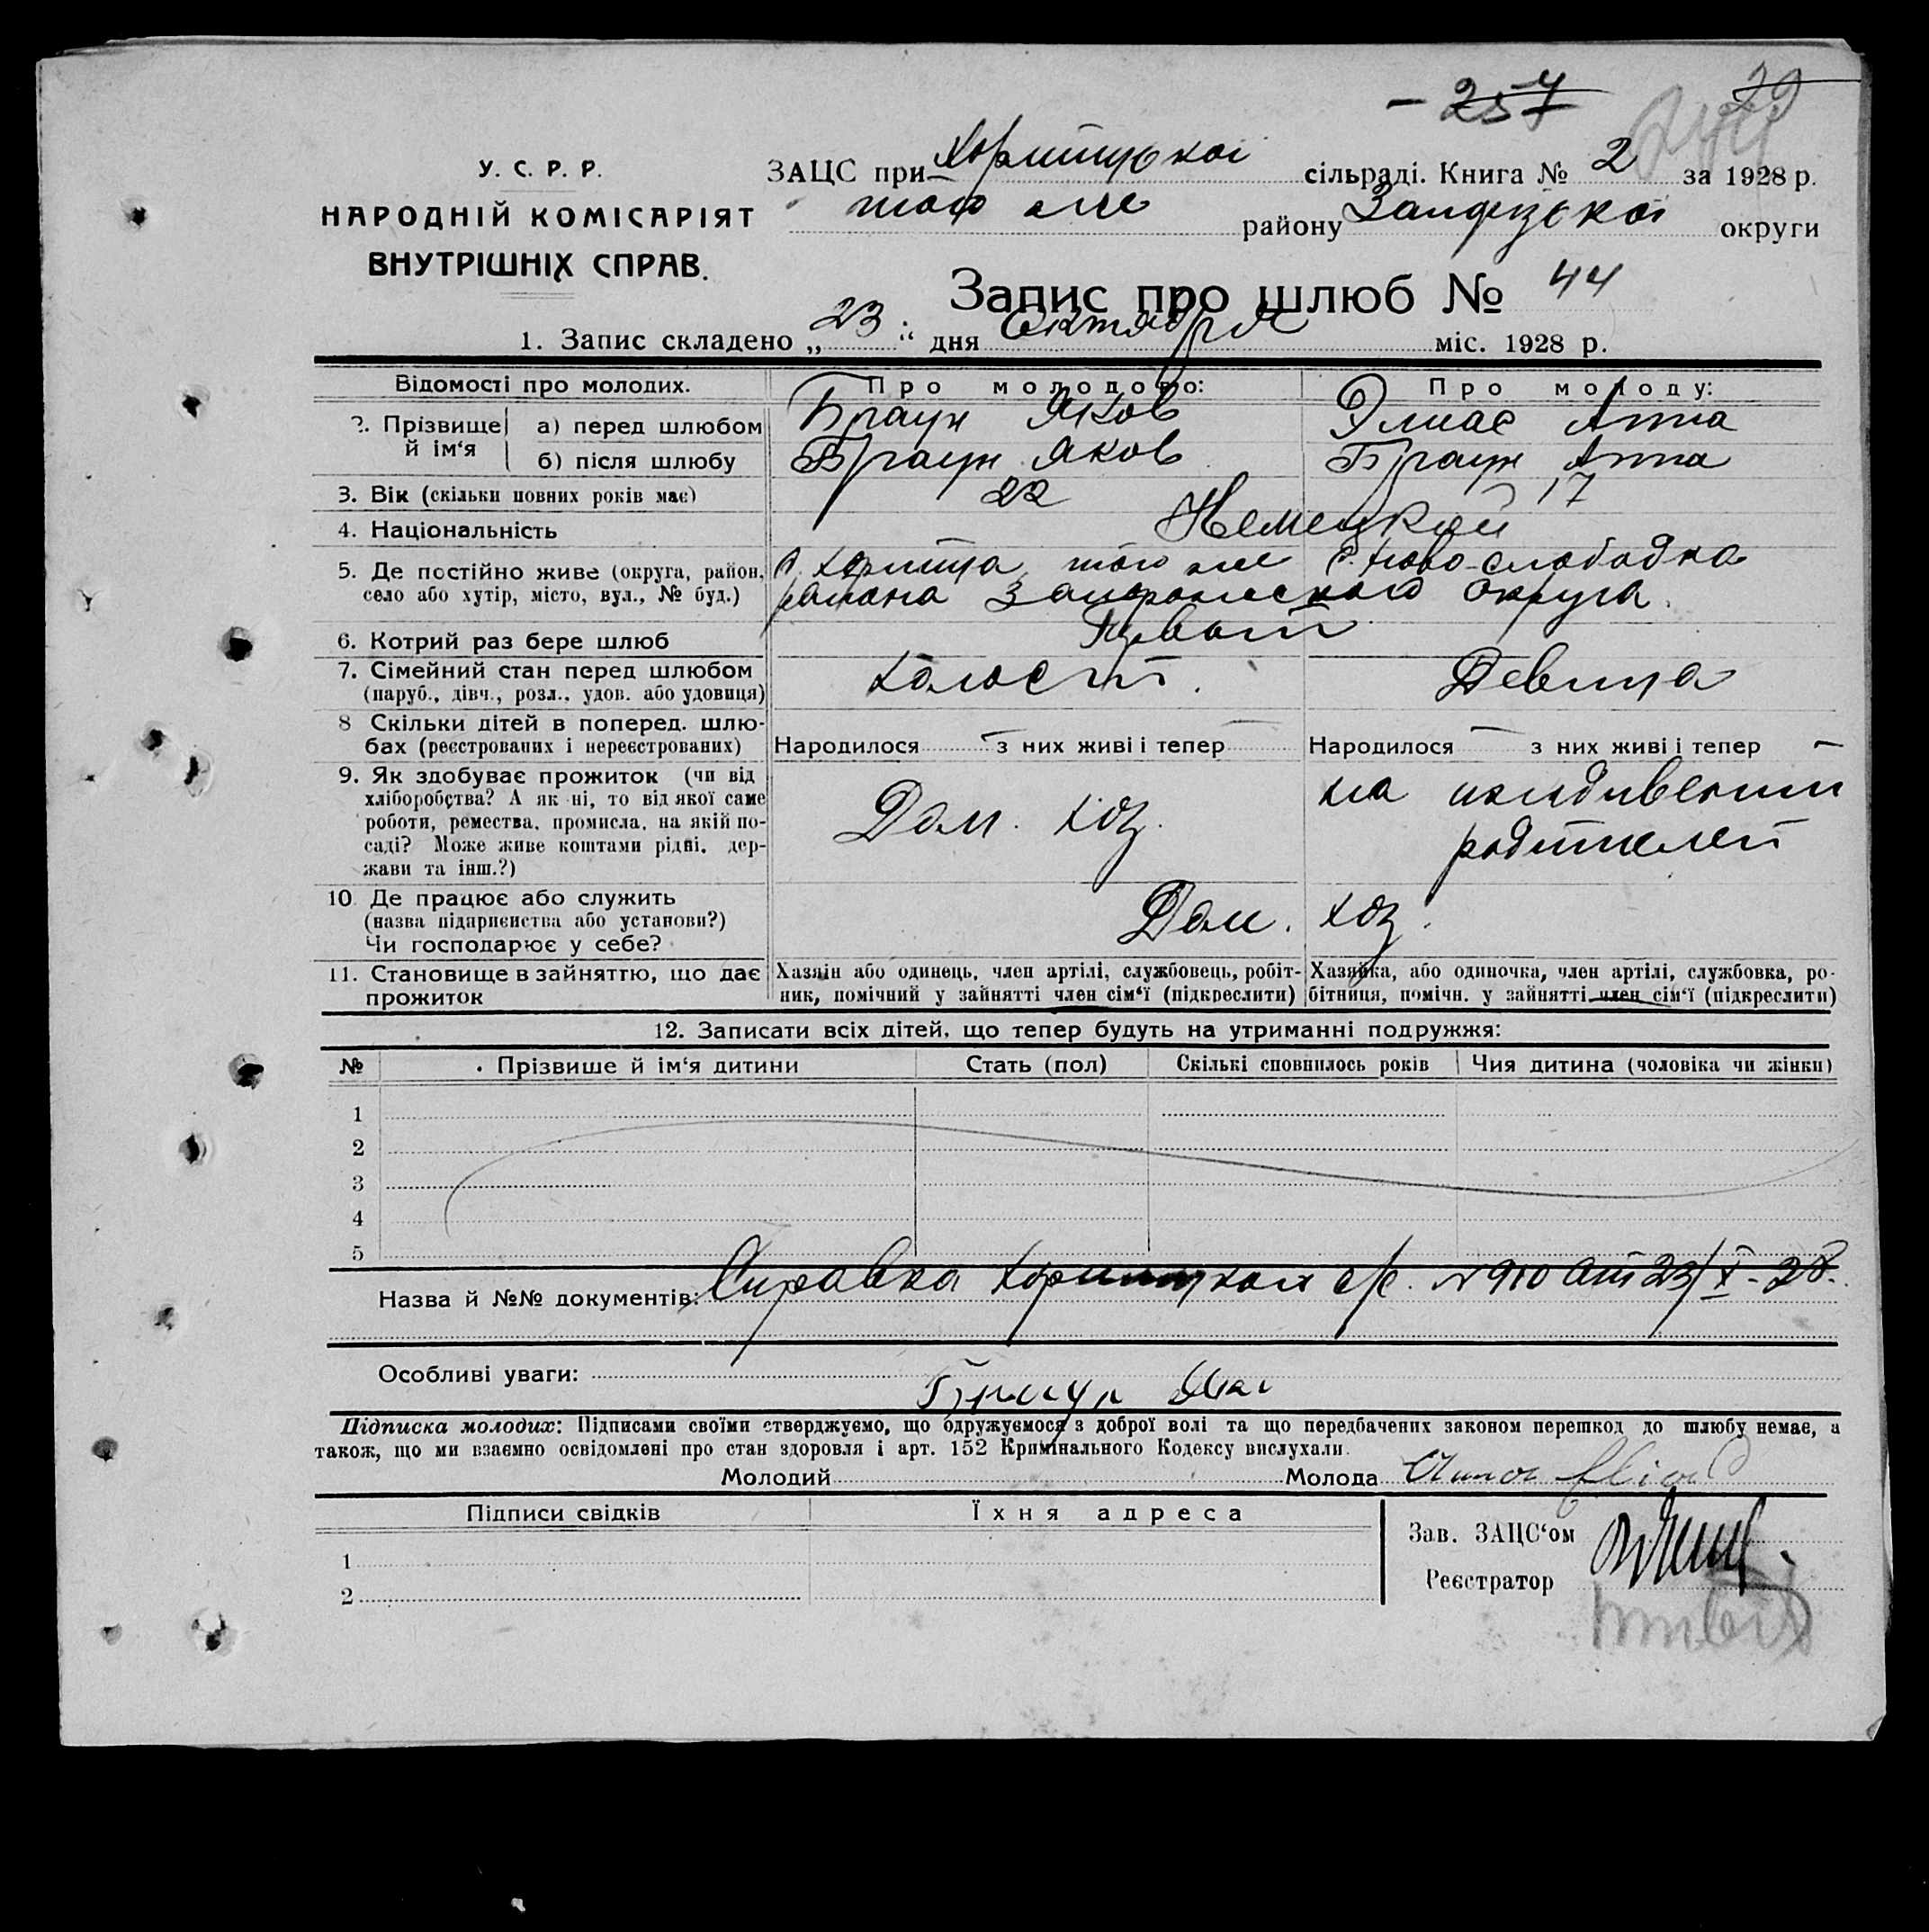 - 257
29
У. С. Р. Р.
НАРОДНІЙ КОМІСАРІЯТ
ВНУТРІШНІХ СПРАВ.
ЗАЦС при Хортицької сільраді. Книга № 2 за 1928 р.
того же району Запорізької округи
Запис про шлюб № 44
1. Запис складено „ 23 “ дня Октября міс. 1928 р.
Відомості про молодих. Про молодого: Про молоду:
2. Прізвище й ім‘я а) перед шлюбом Браун Яков Элиас Анна
б) після шлюбу Браун Яков Браун Анна
3. Вік (скільки повних років має) 22 17
4. Національність Немецкой
5. Де постійно живе (округа, район, с. Хортица, того же с. Ново-слободка
село або хутір, місто, вул., № буд.) района Запорожского округа.
6. Котрий раз бере шлюб Первый
7. Сімейний стан перед шлюбом Холост. Девица
(паруб., дівч., розл., удов. або удовиця)
8 Скільки дітей в поперед. шлю-
бах (реєстрованих і нереєстрованих) Народилося — з них живі і тепер — Народилося — з них живі і тепер —
9. Як здобуває прожиток (чи від
хліборобства? А як ні, то від якої саме
роботи, ремества, промисла, на якій по-
саді? Може живе коштами рідні, дер-
жави та інш.?)
Дом. хоз.
на иждивении
родителей
10. Де працює або служить
(назва підприємства або установи?)
Чи господарює у себе?
Дом. хоз.
11. Становище в зайняттю, що дає
прожиток
Хазяїн або одинець, член артілі, службовець, робіт-
ник, помічний у зайнятті член сім‘ї (підкреслити)
Хазяйка, або одиночка, член артілі, службовка, ро-
бітниця, помічн. у зайнятті член сім‘ї (підкреслити)
12. Записати всіх дітей, що тепер будуть на утриманні подружжя:
№ Прізвише й ім‘я дитини Стать (пол) Скількі сповнилось років Чия дитина (чоловіка чи жінки)
1
2
3
4
5
Назва й №№ документів: Справка Хортицкой с/с. № 910 от 23/X-28.
Особливі уваги:
Браун Яков
Підписка молодих: Підписами своїми стверджуємо, що одружуємося з доброї волі та що передбачених законом перешкод до шлюбу немає, а
також, що ми взаємно освідомлені про стан здоровля і арт. 152 Кримінального Кодексу вислухали.
Молодий Молода Anna Elias
Підписи свідків Їхня адреса
1
2
Зав. ЗАЦС‘ом
Реєстратор